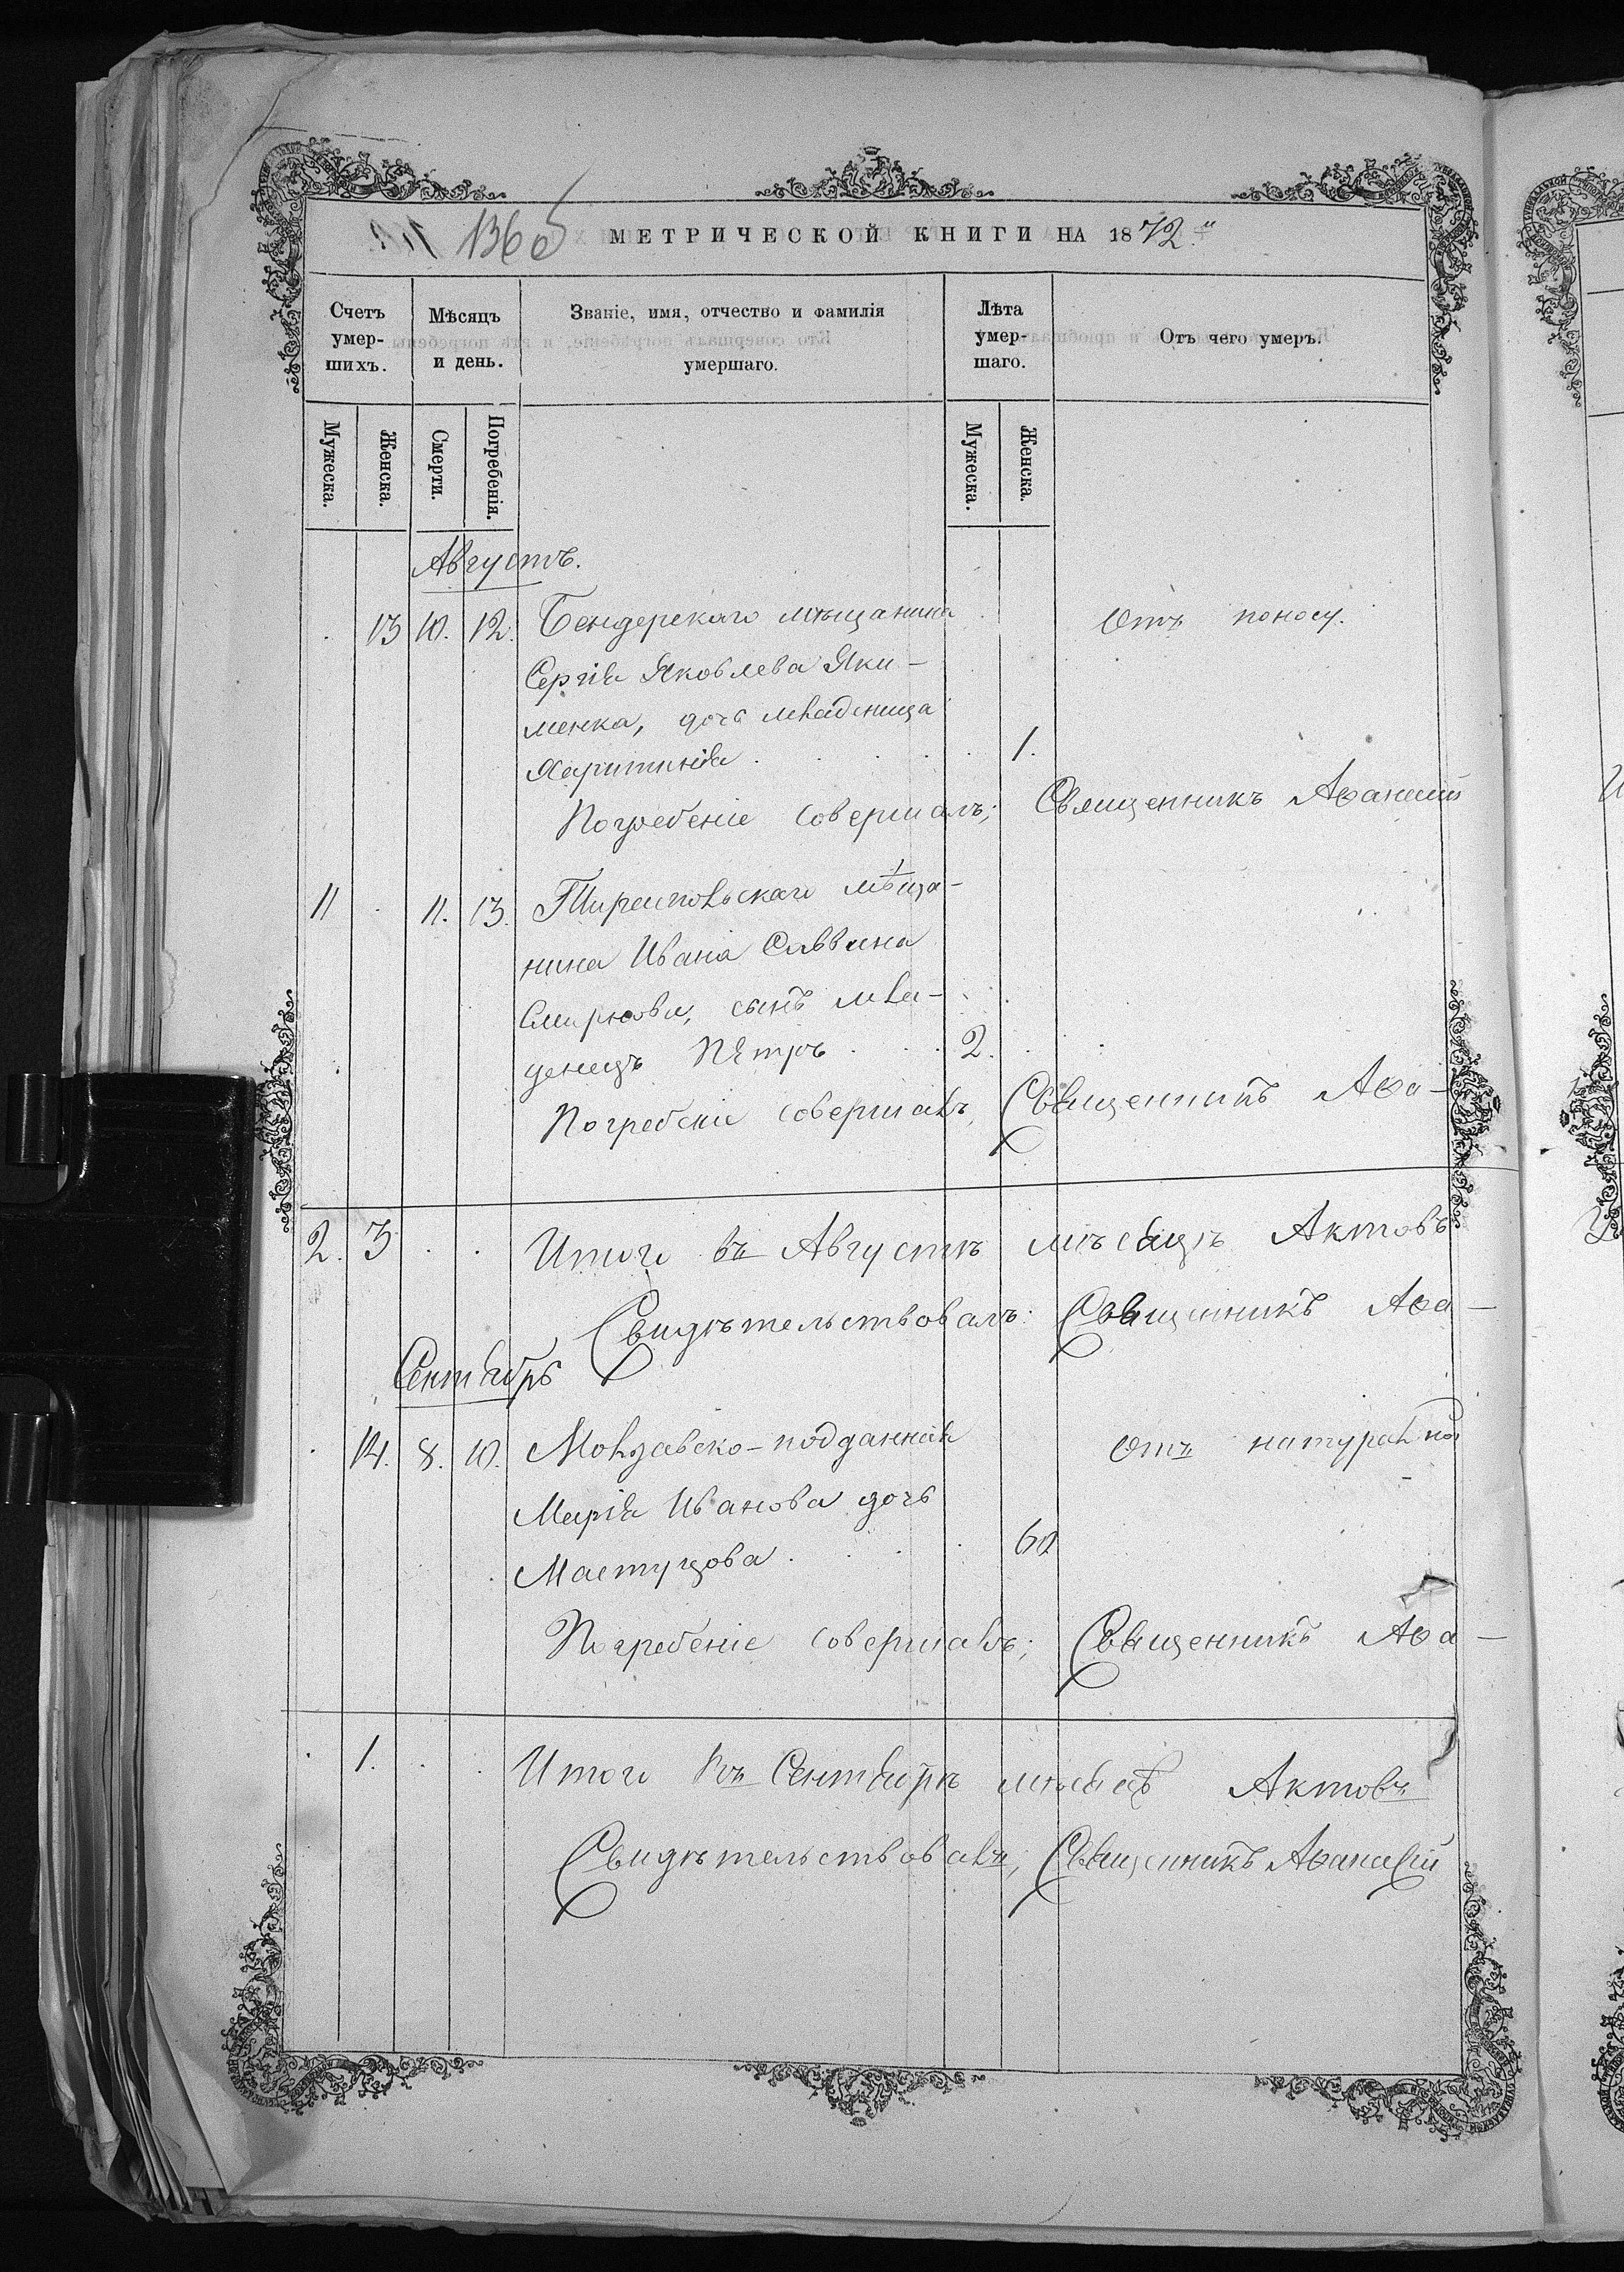 1360б
МЕТРИЧЕСКОЙ КНИГИ НА 1872.
Счетъ умер-шихъ. Мѣсяцъ и день. Званіе, имя, отчество и фамилія умершаго. Лѣта умер-шаго. Отъ чего умеръ.
Мужеска. Женска. Смерти. Погребенія. Мужеска. Женска.
Августъ.
13 10. 12. Бендерскаго мѣщанина Отъ поносу.
Сергія Яковлева Яки-
менка, дочь младеница
Харитинія 1.
Погребеніе совершалъ; Священникъ Аѳанасій
11 11. 13. Тираспольскаго мѣща-
нина Ивана Саввина
Смирнова, сынъ мла-
денецъ Петръ 2.
Погребеніе совершалъ, Священникъ Аѳа-
2. 3 Итого въ Августѣ мѣсяцѣ Актовъ
Свидѣтельствовалъ: Священникъ Аѳа-
Сентябрь
14. 8. 10. Молдавско-подданная Отъ натуральной
Марія Иванова дочь
60
Погребеніе совершалъ; Священникъ Аѳа-
1. Итого въ Сентябрѣ мѣсяцѣ Актовъ
Свидѣтельствовалъ; Священникъ Аѳанасій